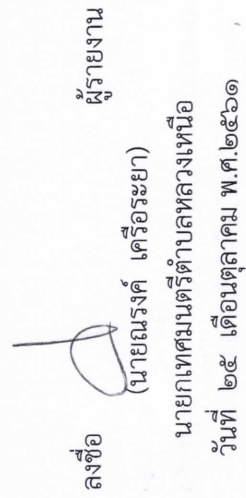 ลงชื่อ ผู้รายงาน
(นายณรงค์ เครือระยา)
นายกเทศมนตรีตำบลหลวงเหนือ
วันที่ ๒๕ เดือนตุลาคม พ.ศ.๒๕๖๑